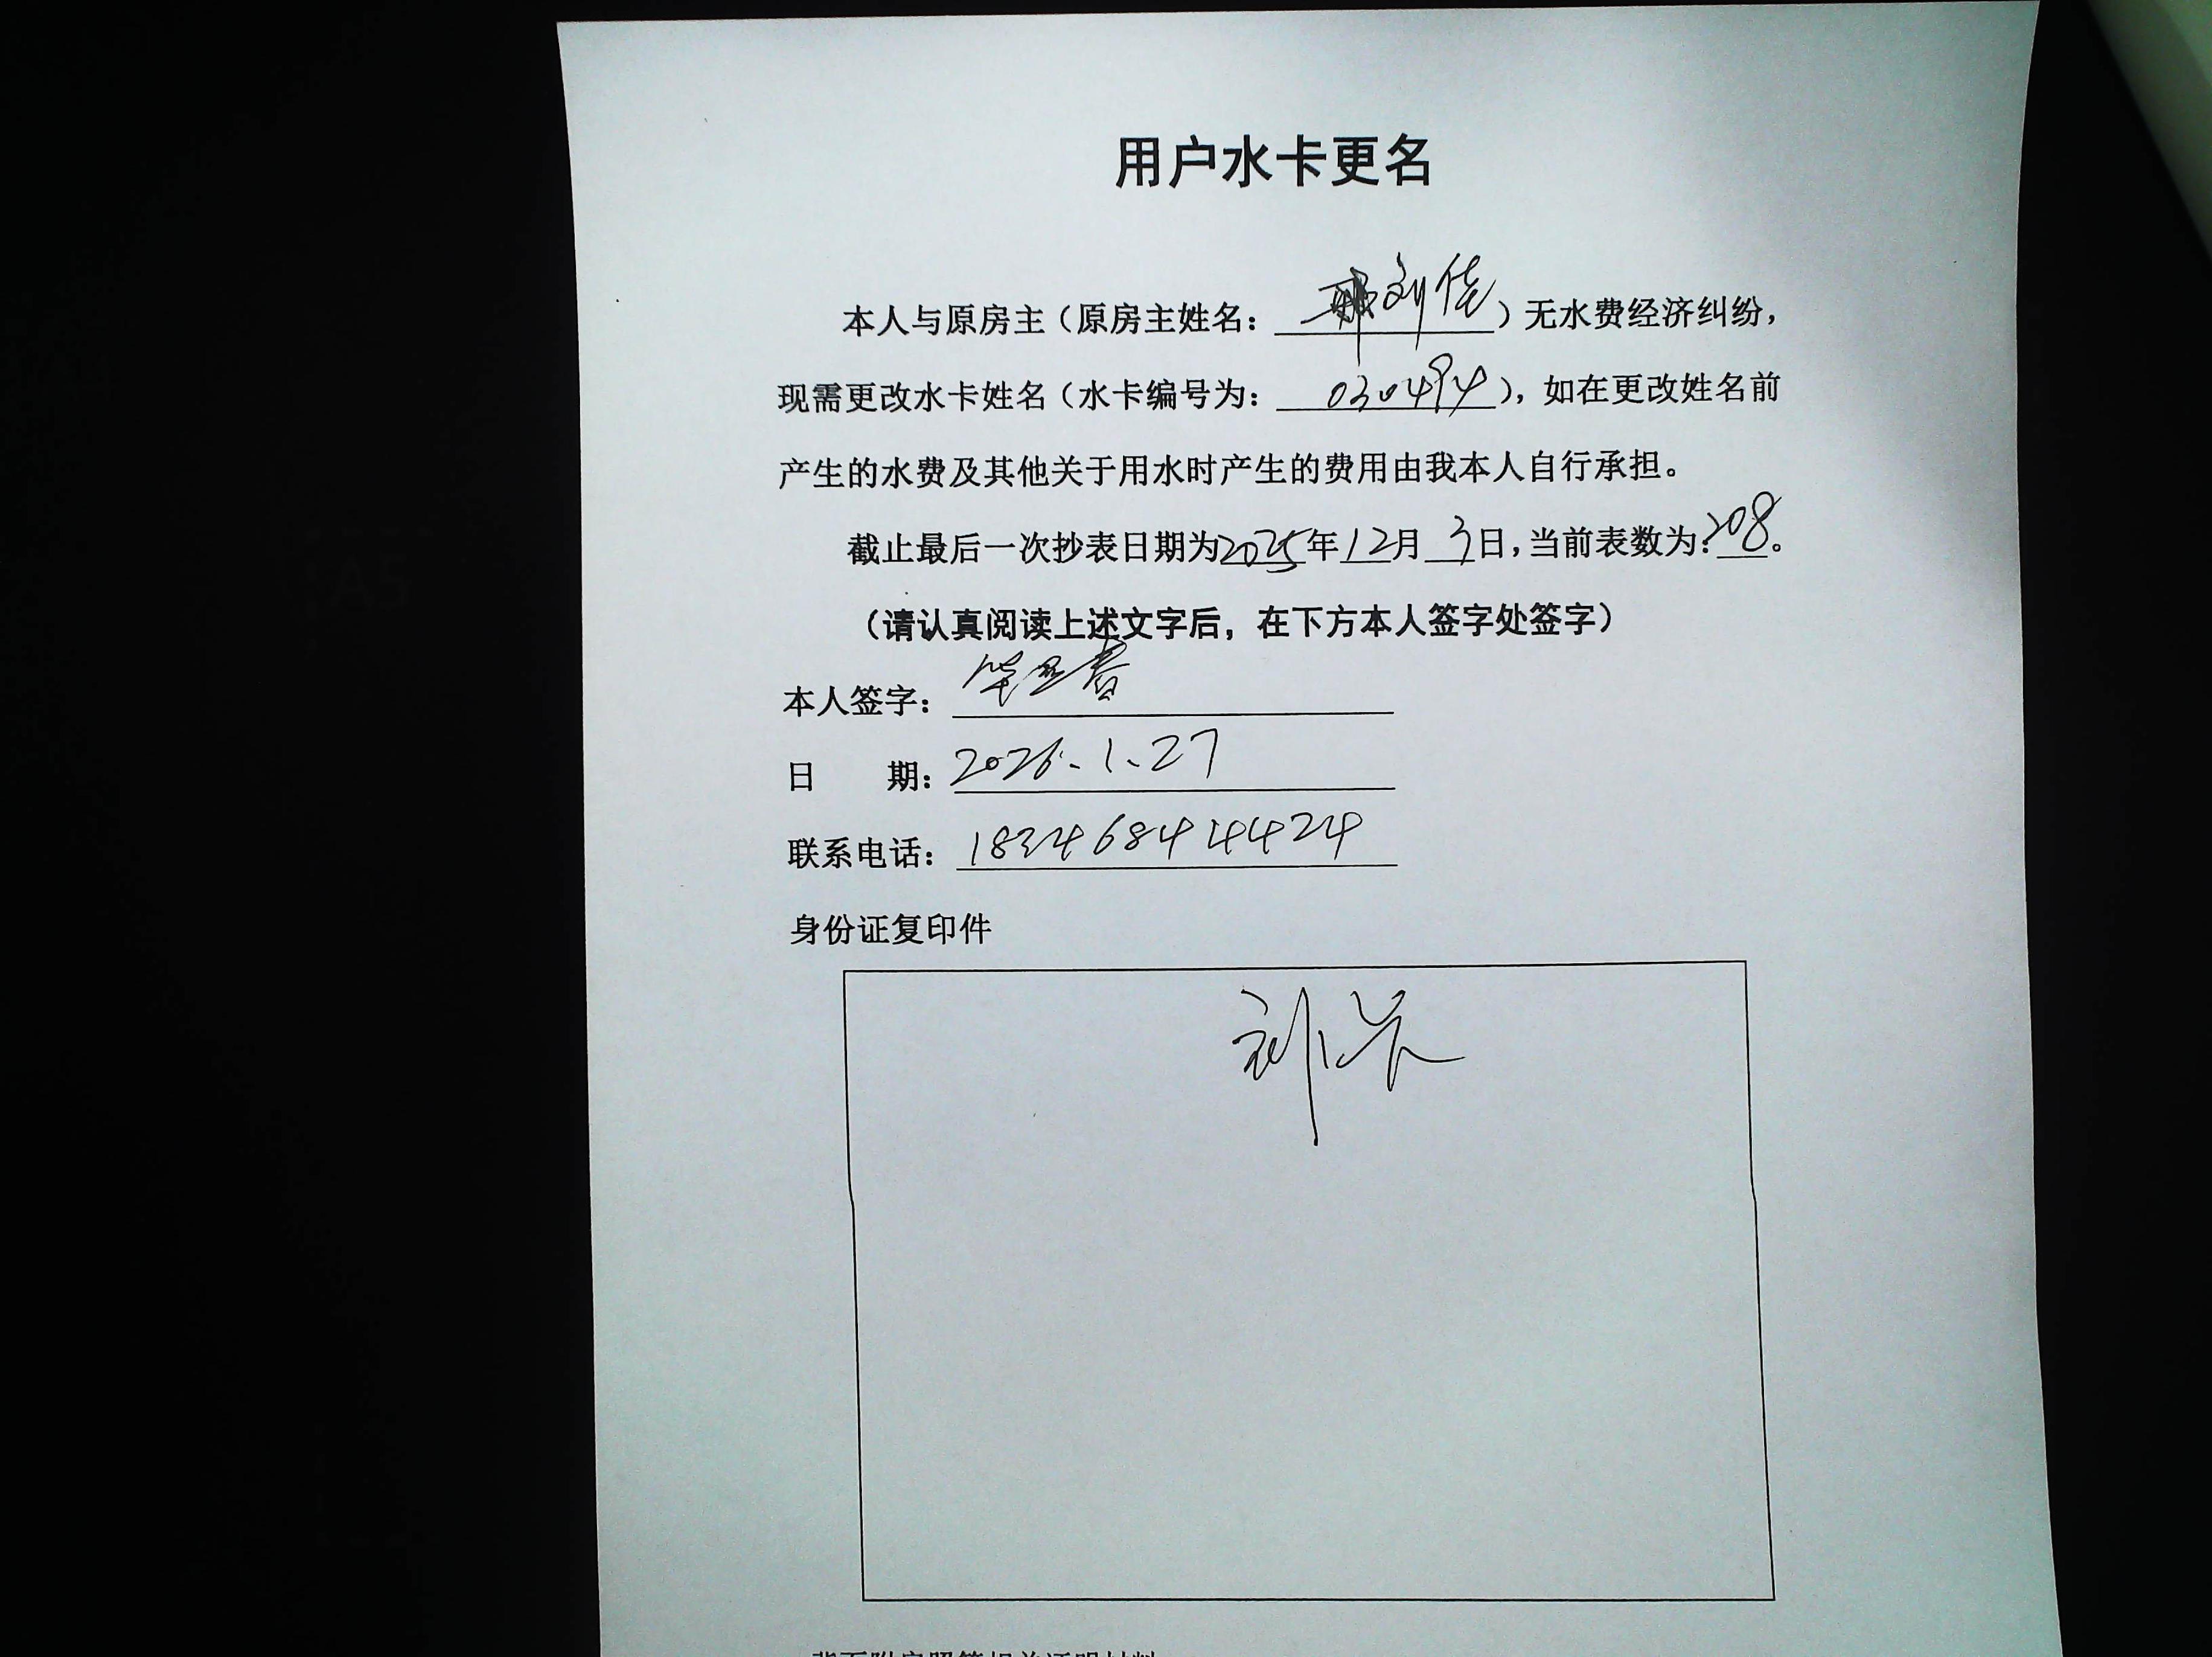 用户水卡更名
本人与原房主（原房主姓名：刘佳）无水费经济纠纷，
现需更改水卡姓名（水卡编号为：030494），如在更改姓名前
产生的水费及其他关于用水时产生的费用由我本人自行承担。
截止最后一次抄表日期为2025年12月3日，当前表数为：208。
（请认真阅读上述文字后，在下方本人签字处签字）
本人签字：
日 期：2026.1.27
联系电话：18346844424
身份证复印件